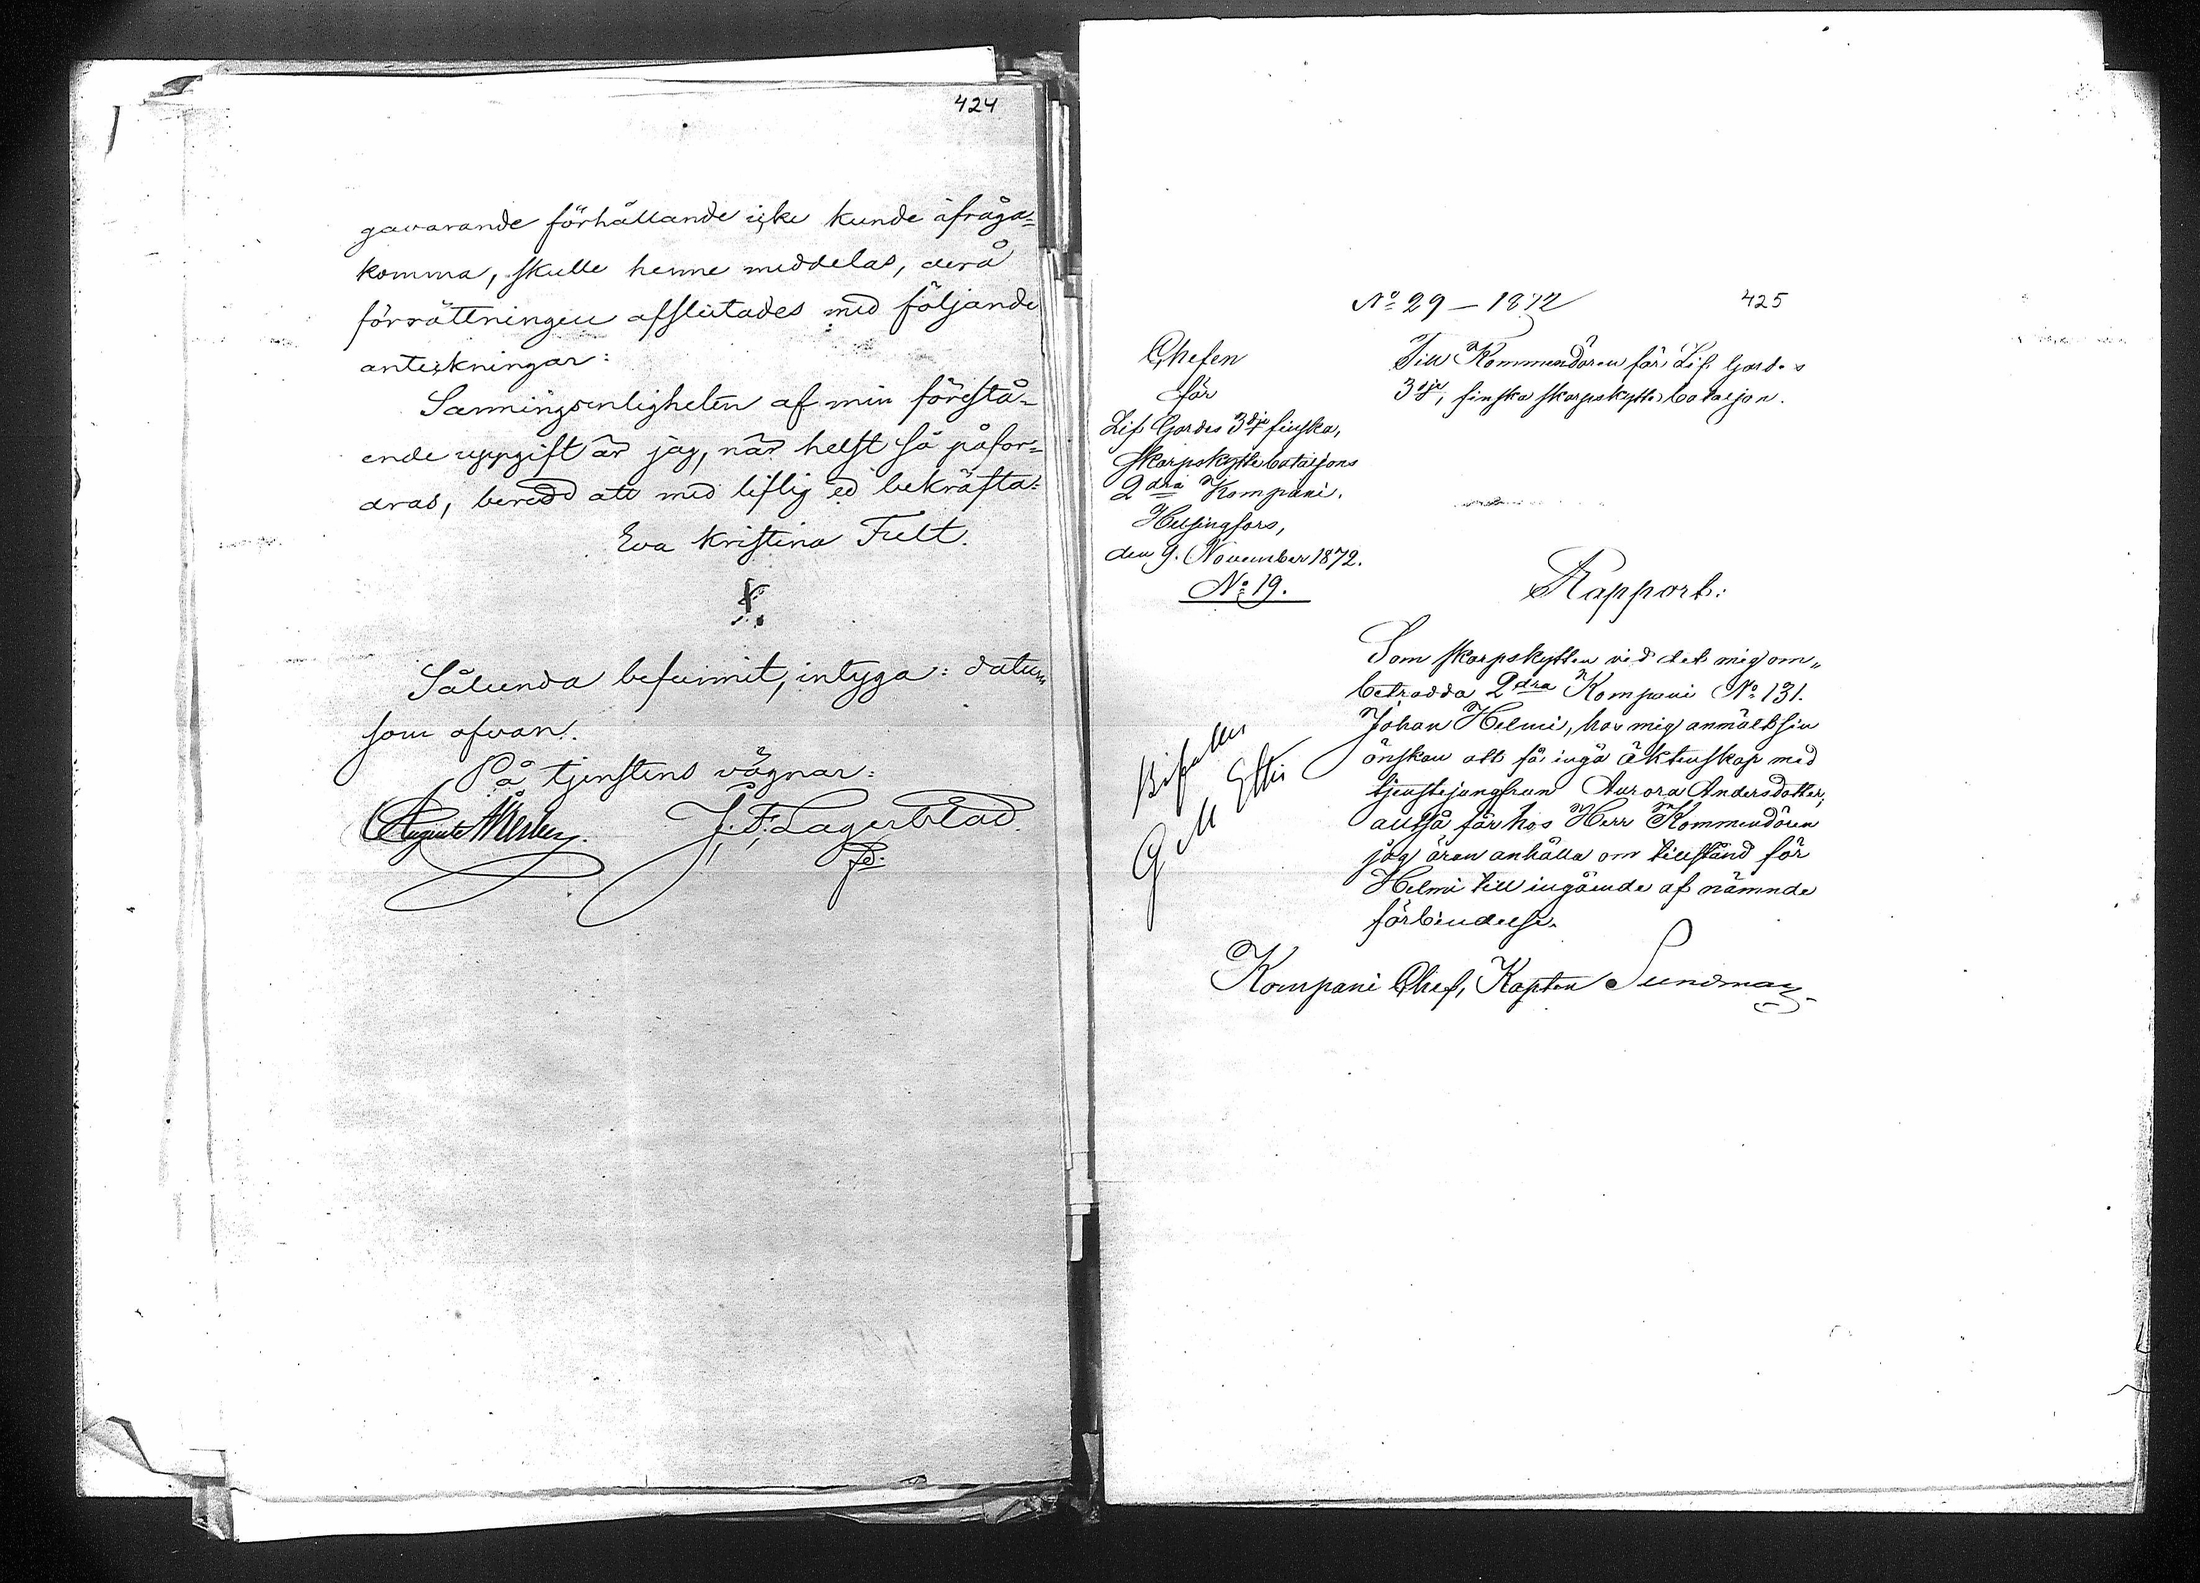 424
gavarande förhållande icke kunde ifråga=
komma, skulle henne meddelas, derå
förrättningen afslutades med följande
anteckningar:
Sanningsenligheten af min förestå=
ende uppgift är jag, när helst så påfor=
dras, beredd att med liflig ed bekräfta:
Eva Kristina Fält.
Sålunda befunnit, intyga: datum
som ofvan.
På tjenstens vägnar:
August J. F. Lagerblad.
No 29 – 1872
425
Chefen
för
Lif Gardes 3dje finska,
skarpskyttebataljons
2dra Kompani.
Helsingfors,
den 9. November 1872.
No 19.
Till Kommendören för Lif Gardes
3dje, finska skarpskyttebataljon.
Rapport:
Som skarpskytten vid det mig om„
betrodda 2dra Kompani No 131.
Johan Helmi, hos mig anmält sin
önskan att få ingå äktenskap med
tjenstejungfrun Aurora Andersdotter,
alltså får hos Herr Kommendören
jag äran anhålla om tillstånd för
Helmi till ingående af nämnde
förbindelse.
Bifalles
Kompani Chef, Kapten Sundman